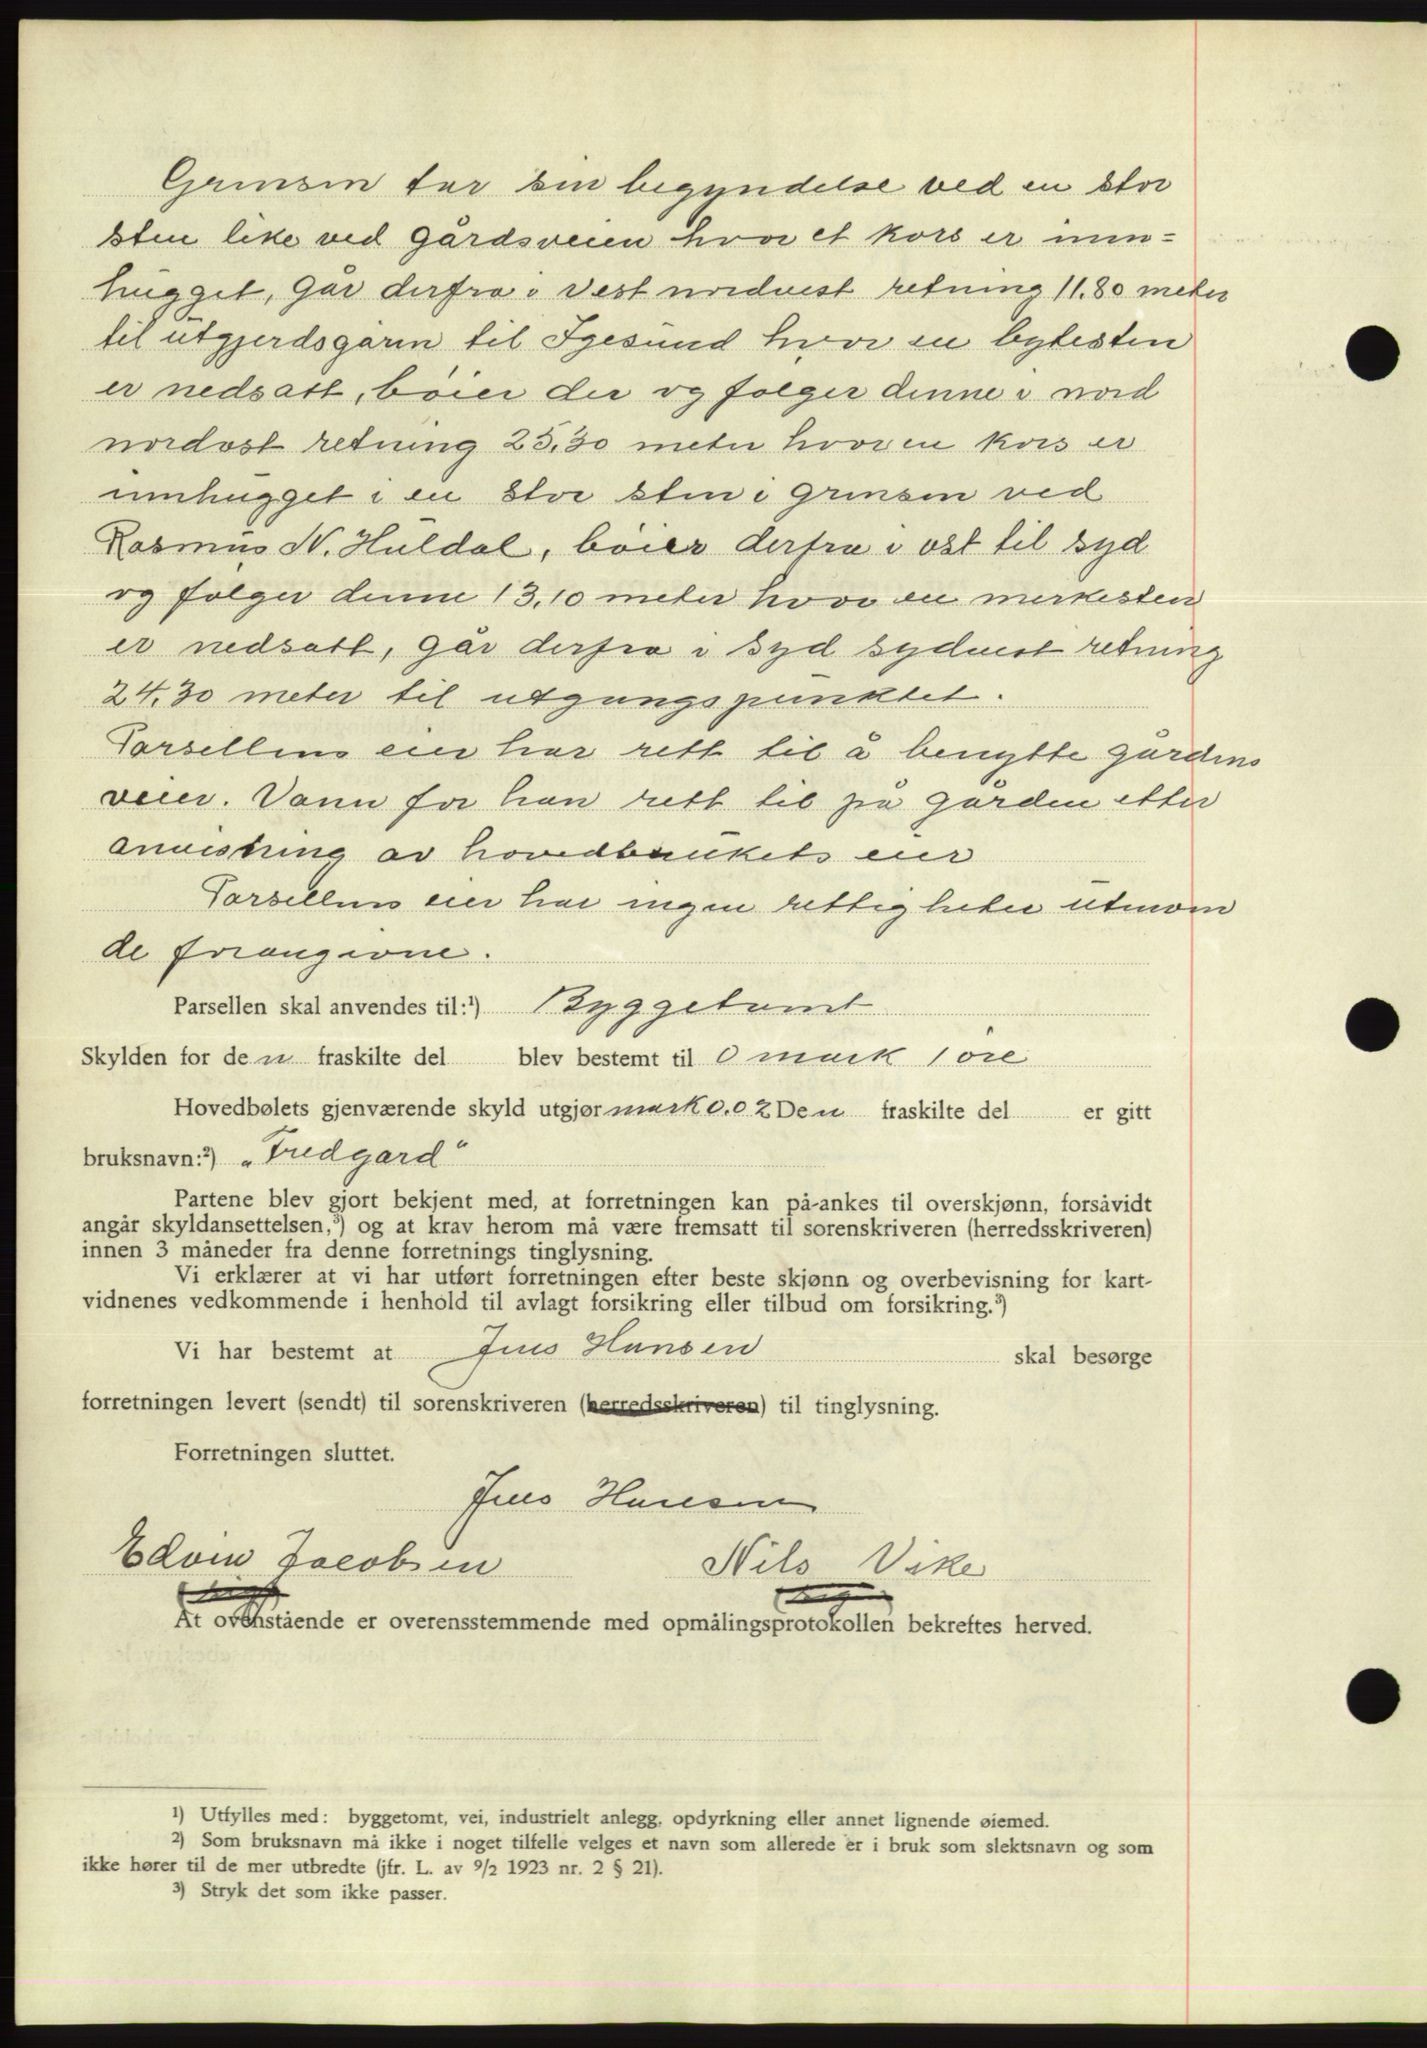 Grensen tar sin begyndelse ved en stor
sten like ved gårdsveien hvor et kors er inn=
hugget, går derfra i vest nordvest retning 11.80 meter
til utgjerdsgarn til Igesund hvor en bytesten
er nedsatt, bøier der og følger denne i nord
nordost retning 25.30 meter hvor en kors er
innhugget i en stor sten i grensen ved
Rasmus N. Huldal, bøier derfra i ost til syd
og følger denne 13.10 meter hvor en merkesten
er nedsatt, går derfra i syd sydvest retning
24.30 meter til utgangspunktet.
Parsellens eier har rett til å benytte gårdens
veier. Vann for han rett til på gården etter
anvisning av hovedbrukets eier
Parsellens eier har ingen rettigheter utenom
de forangivne.
Parsellen skal anvendes til:¹) Byggetomt
Skylden for den fraskilte del blev bestemt til 0 mark 1 øre
Hovedbølets gjenværende skyld utgjør mark 0.02 Den fraskilte del er gitt
bruksnavn:²) „Fredgard"
Partene blev gjort bekjent med, at forretningen kan på-ankes til overskjønn, forsåvidt
angår skyldansettelsen,³) og at krav herom må være fremsatt til sorenskriveren (herredsskriveren)
innen 3 måneder fra denne forretnings tinglysning.
Vi erklærer at vi har utført forretningen efter beste skjønn og overbevisning for kart-
vidnenes vedkommende i henhold til avlagt forsikring eller tilbud om forsikring.³)
Vi har bestemt at Jens Hansen skal besørge
forretningen levert (sendt) til sorenskriveren (herredsskriveren) til tinglysning.
Forretningen sluttet.
Jens Hansen
Edvin Jacobsen Nils Vike
At ovenstående er overensstemmende med opmålingsprotokollen bekreftes herved.
¹) Utfylles med: byggetomt, vei, industrielt anlegg, opdyrkning eller annet lignende øiemed.
²) Som bruksnavn må ikke i noget tilfelle velges et navn som allerede er i bruk som slektsnavn og som
ikke hører til de mer utbredte (jfr. L. av 9/2 1923 nr. 2 § 21).
³) Stryk det som ikke passer.